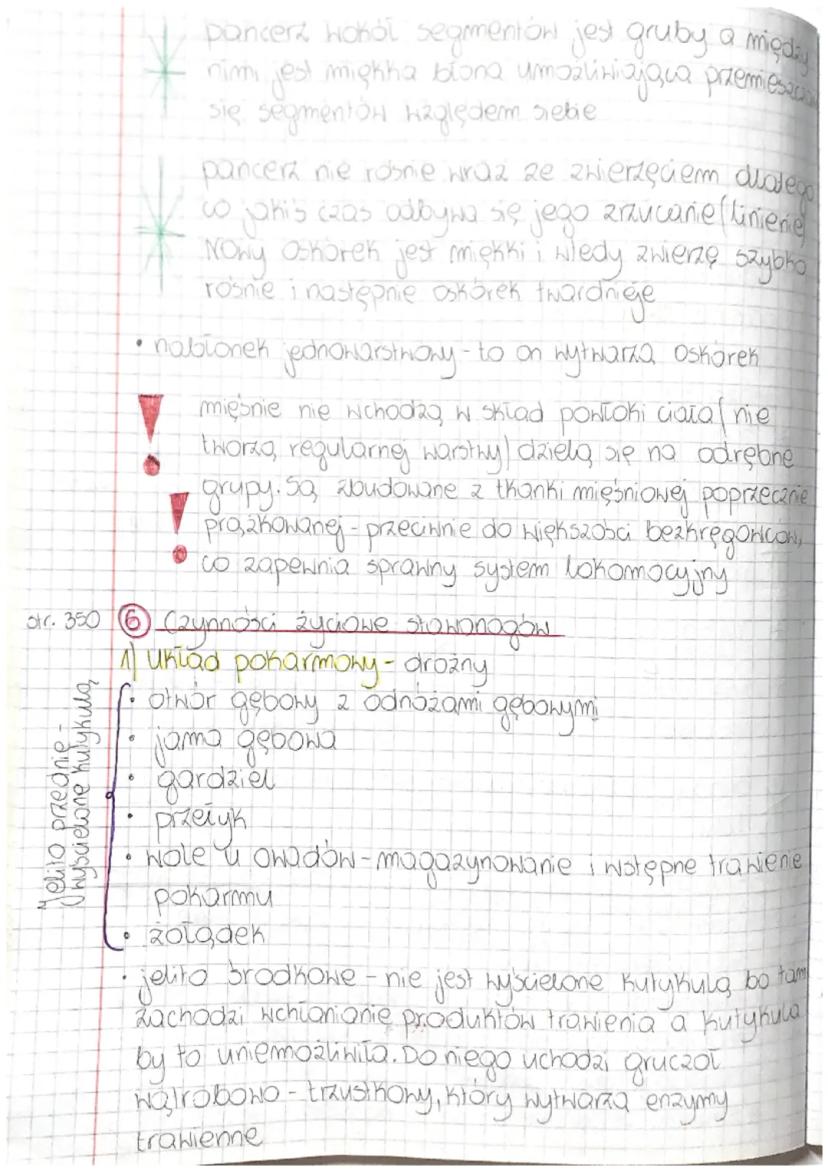 pancerz wokół segmentów jest gruby a między
nimi jest miękka błona umożliwiająca
się segmentów względem siebie
pancerz nie rośnie wraz ze zwierzęciem dlatego
co jakiś czas odbywa się jego zrzucanie (linienie)
Nowy oskórek jest miękki i wtedy zwierzę szybko
rośnie i następnie oskórek twardnieje
• nabłonek jednowarstwowy - to on wytwarza oskórek
! mięśnie nie wchodzą w skład powłoki ciała (nie
tworzą regularnej warstwy) dzielą się na odrębne
! grupy. Są zbudowane z tkanki mięśniowej poprzecznie
prążkowanej - przeciwnie do większości bezkręgowców,
co zapewnia sprawny system lokomocyjny
str. 350 ⑥ Czynności życiowe stawonogów
1) Układ pokarmowy - drożny
• otwór gębowy z odnóżami gębowymi
• jama gębowa
• gardziel
• przełyk
• wole u owadów - magazynowanie i wstępne trawienie
pokarmu
• żołądek
Jelito przednie -
wyścielone kutykulą
• jelito środkowe - nie jest wyścielone kutykulą bo tam
zachodzi wchłanianie produktów trawienia a kutykula
by to uniemożliwiła. Do niego uchodzi gruczoł
wątrobowo - trzustkowy, który wytwarza enzymy
trawienne